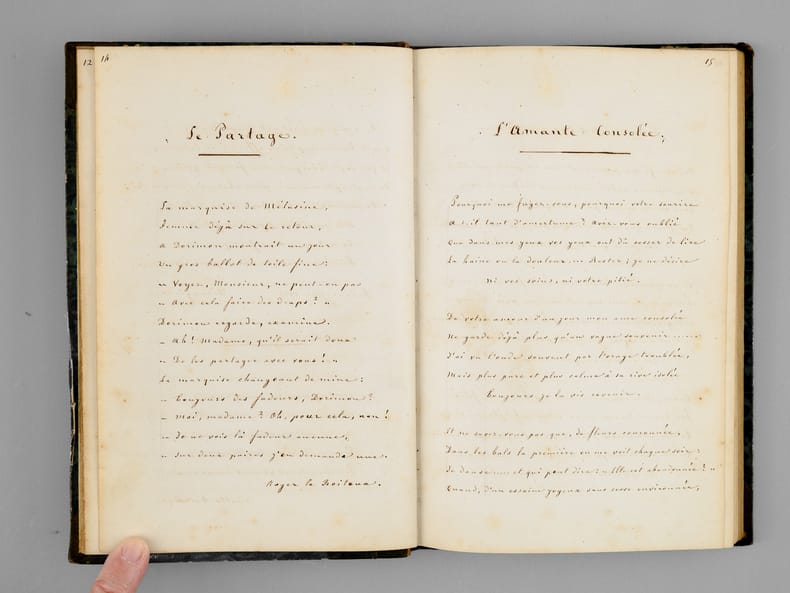 12
14
Le Partage.
La marquise de Mélusine,
Femme déjà sur le retour,
A Dorimon montrait un jour
Un gros ballot de toile fine :
" Voyez, Monsieur, ne peut-on pas
" Avec cela faire des draps ? "
Dorimon regarde, examine.
" Ah ! Madame, qu'il serait doux
" De les partager avec vous ! "
La marquise changeant de mine :
" Toujours des fadeurs, Dorimon ?
" Moi, madame ? Oh, pour cela, non !
" Je ne vois là fadeur aucune,
" Sur deux paires j'en demande une.
Roger le
15
L'Amante Consolée.
Pourquoi me fuyez-vous, pourquoi votre sourire
A-t-il tant d'amertume ? Avez-vous oublié
Que dans mes yeux vos yeux ont dû cesser de lire
La haine ou la douleur ... Restez ; je ne désire
Ni vos soins, ni votre pitié.
De votre amour d'un jour mon âme consolée
Ne garde déjà plus qu'un vague souvenir......
J'ai vu l'onde souvent par l'orage troublée,
Mais plus pure et plus calme à sa rive isolée
Toujours je la vis revenir.
Et ne savez-vous pas que, de fleurs couronnée,
Dans les bals la première on me voit chaque soir ;
Je danse et qui peut dire : " Elle est abandonnée ! "
Quand, d'un essaim joyeux sans cesse environnée,